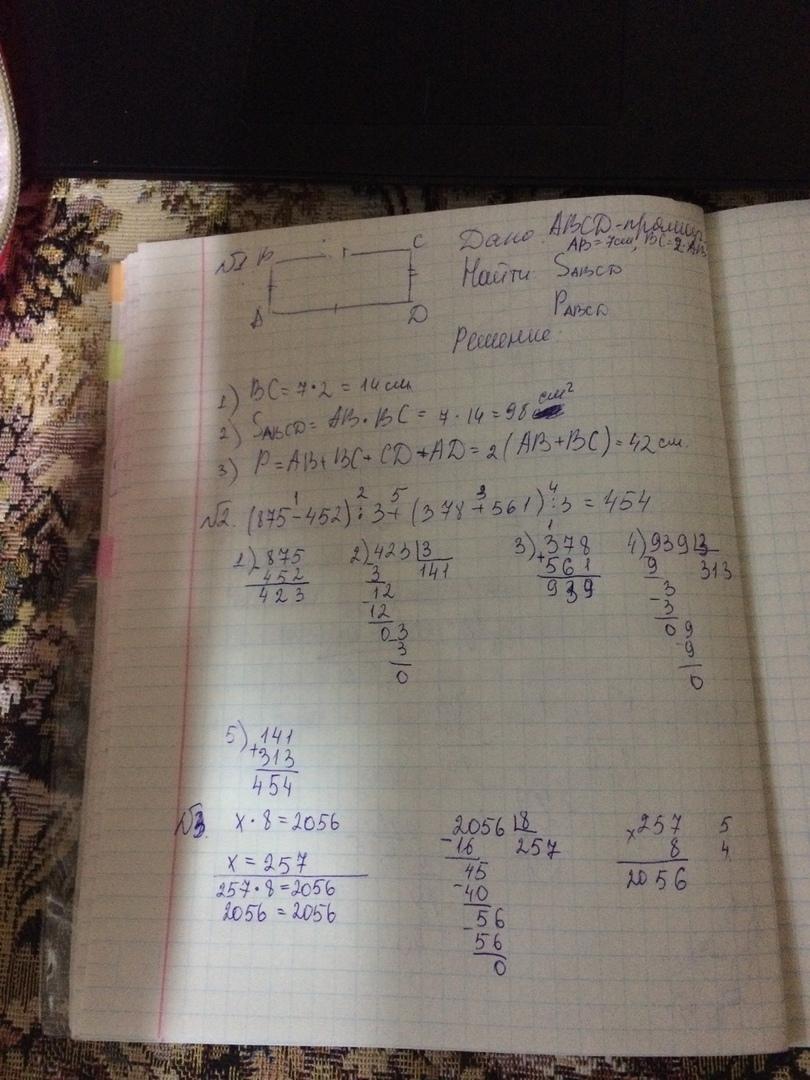 №1
B C
A D
Дано: ABCD-прямоуг
AB=7см, BC=2·AB
Найти: SABCD
PABCD
Решение:
1) BC=7·2=14см
2) SABCD=AB·BC=7·14=98 см²
3) P=AB+BC+CD+AD=2(AB+BC)=42см.
1 2 5 3 4
№2. (875-452):3+(378+561):3=454
1) -875
452
423
2) 423 3
3 141
-12
12
0 3
3
0
3) 1
+378
561
939
4) 939 3
9 313
3
-3
0 9
-9
0
5) +141
313
454
№3. x·8=2056
x=257
257·8=2056
2056=2056
2056 8
-16 257
45
-40
56
-56
0
×257 5
8 4
2056